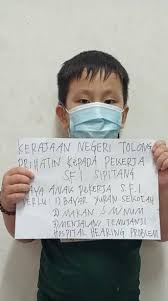 KERAJAAN NEGERI TOLONG
PRIHATIN KEPADA PEKERJA
SFI SIPITANG
SAYA ANAK PEKERJA S.F.I
PERLU 1) BAYAR YURAN SEKOLAH
2) MAKAN & MINUM
3) MENJALANI TEMUJANJI
HOSPITAL HEARING PROBLEM